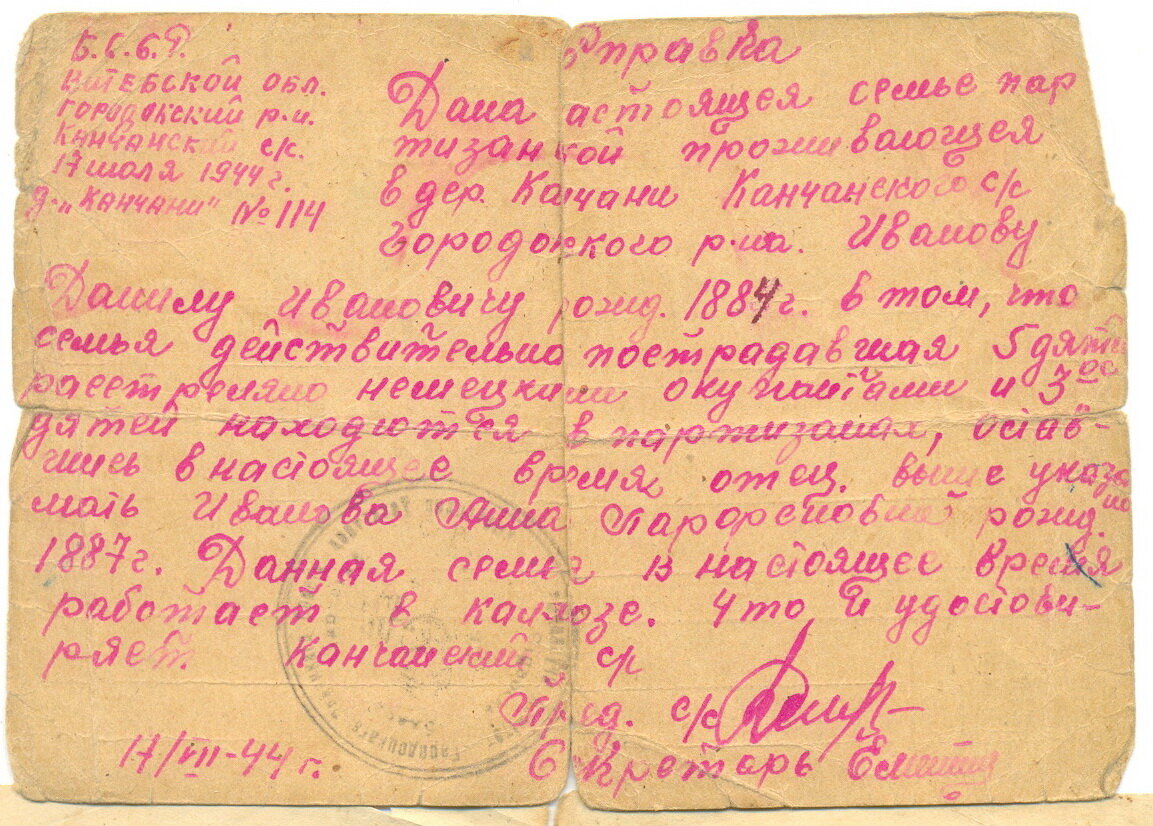 Б.С.С.Р.
ВИТЕБСКОЙ ОБЛ.
ГОРОДОКСКИЙ р-н.
КАНЧАНСКИЙ с/с.
17 июля 1944 г.
д. „КАНЧАНИ" № 114
Справка
Дана настоящея семье пар
тизанкой проживающея
в дер. Канчани Канчанского с/с
Городокского р-на. Иванову
Данилу Ивановичу рожд. 1884 г. в том, что
семья действительно пострадавшая 5 дятей
расстреляно немецкими окупантами и 3 ое
дятей находются в партизанах, остав-
шись в настоящее время отец. выше указано
мать Иванова Анна Парфеновной рожд.
1887 г. Данная семья в настоящее время
работает в калхозе. Что й удостови-
ряет Канчанский с/с
Пред. с/с
17/VII-44 г. Секретарь